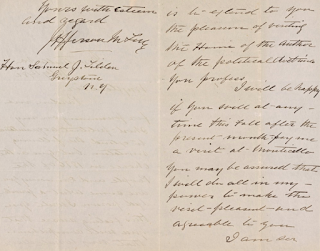 is to extend to you
the pleasure of visiting
the Home of the author
of the political
you profess.
I will be happy
if you will at any
time this fall after the
present month pay me
a visit at Monticello
You may be assured that
I will do all in my
power to make this
visit pleasant and
agreeable to you
I am
Yours with esteem
and regard
Jefferson M Levy
Hon Samuel J. Tilden
Greystone
N.Y.